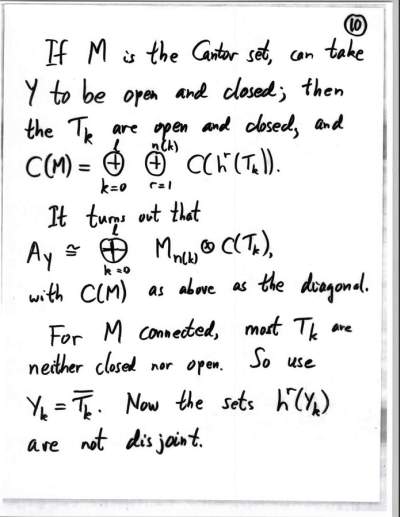 10
If M is the Cantor set, can take
Y to be open and closed; then
the T_k are open and closed, and
C(M) = ⊕_{k=0}^{l} ⊕_{r=1}^{n(k)} C(h^r(T_k)).
It turns out that
A_Y ≅ ⊕_{k=0}^{l} M_{n(k)} ⊗ C(T_k),
with C(M) as above as the diagonal.
For M connected, most T_k are
neither closed nor open. So use
Y_k = \overline{T_k}. Now the sets h^r(Y_k)
are not disjoint.